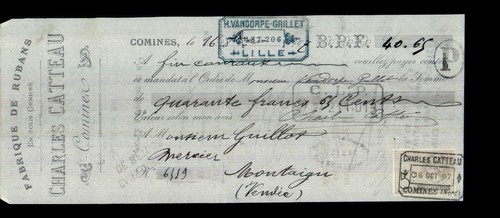 FABRIQUE DE RUBANS
EN TOUS GENRES
CHARLES CATTEAU
Comines
H. VANDORPE-GRILLET
LILLE
COMINES, le 16
B.P.F. 40.65
A fin courant veuillez payer contre
ce mandat à l'Ordre de Monsieur Vandorpe Grillet la Somme
de quarante francs 65 Cents
Valeur selon mon avis
C.I.P.
A Monsieur Guillot
Mercier
N° 6159 Montaigu
(Vendée)
P
CHARLES CATTEAU
16 OCT 07
COMINES (Nord)